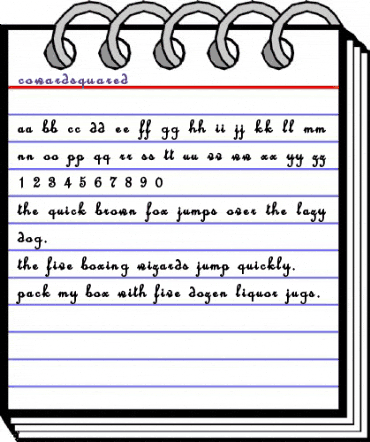 cowardsquared
aa bb cc dd ee ff gg hh ii jj kk ll mm
nn oo pp qq rr ss tt uu vv ww xx yy zz
1 2 3 4 5 6 7 8 9 0
the quick brown fox jumps over the lazy
dog.
the five boxing wizards jump quickly.
pack my box with five dozen liquor jugs.